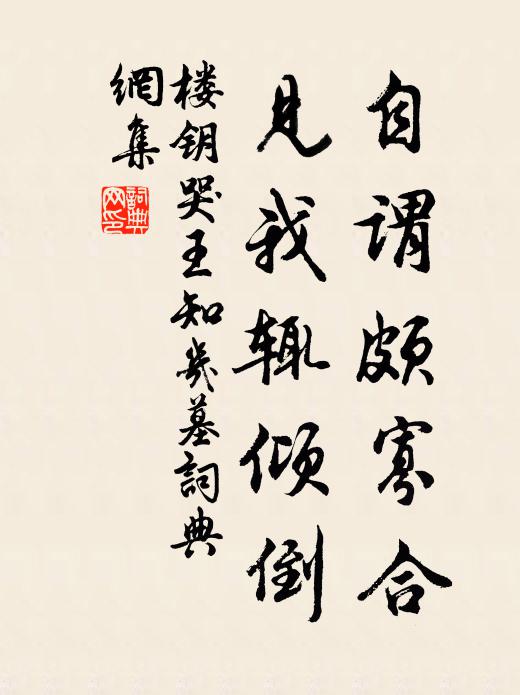 自谓颇寡合
见我辄倾倒
楼钥哭王知几墓詞典
網集
詞典網印